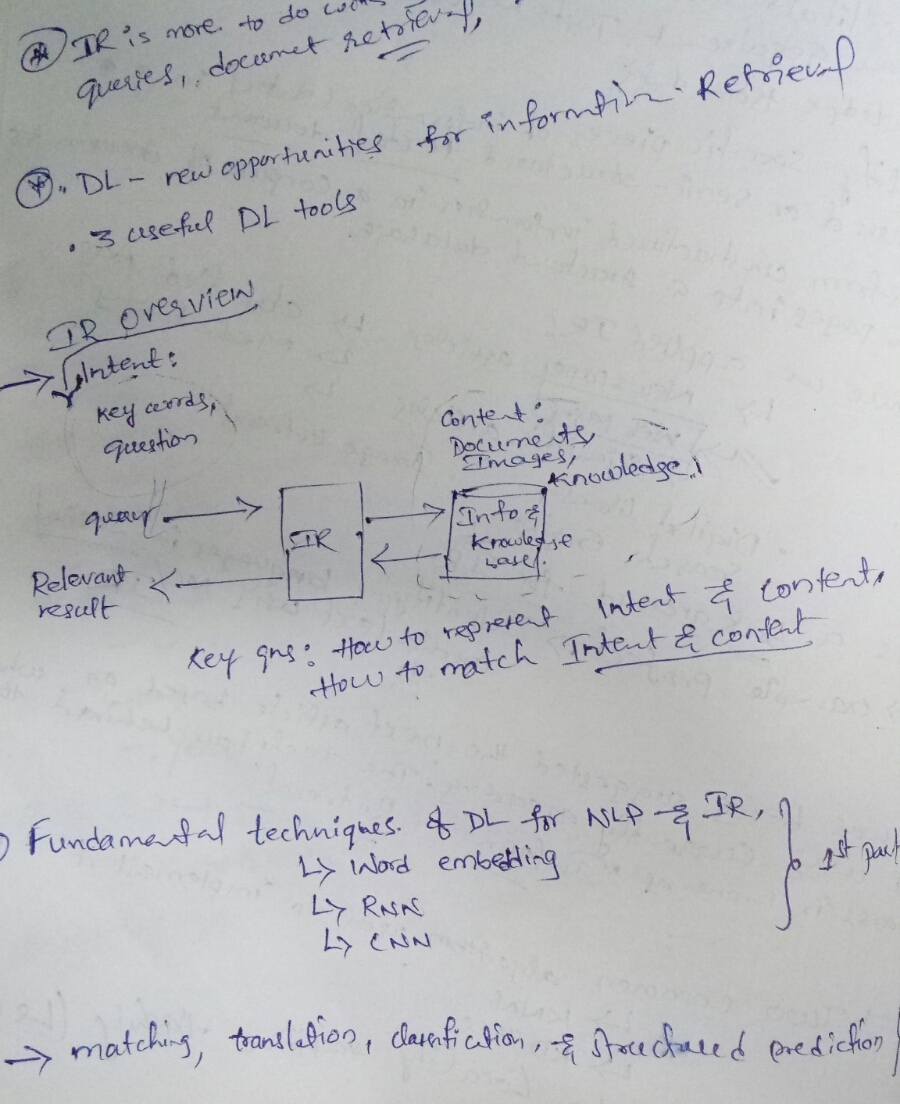 IR is more to do
queries, documet retrieval,
DL - new opportunities for information Retrieval
. 3 useful DL tools
IR overview
Intent:
key words,
question
Content:
Documents,
Images,
Knowledge
query
IR
Info &
Knowledge
base
Relevant
result
Key qns: How to represent Intent & content,
How to match Intent & content
Fundamental techniques of DL for NLP & IR,
↳ Word embedding
↳ RNN
↳ CNN
1st part
→ matching, translation, classification, & structured prediction